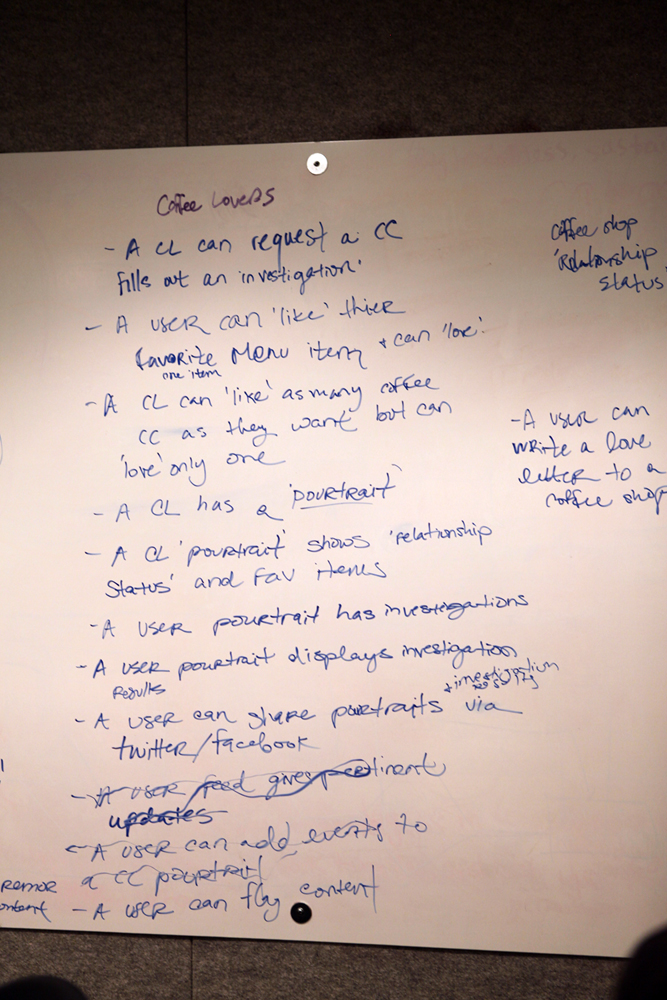 Coffee Lovers
- A CL can request a CC
fills out an investigation'
- A user can 'like' thier
favorite Menu item + can 'love'.
one item
- A CL can 'like' as many coffee
CC as they want but can
'love' only one
- A CL has a 'pourtrait'
- A CL 'pourtrait' shows 'relationship
Status' and Fav items
- A user pourtrait has investigations
- A user pourtrait displays investigation
Results
+ investigation
results
- A user can share pourtraits via
twitter/facebook
- A user feed gives pertinent
updates
- A user can add events to
a CC pourtrait
- A user can flag content
coffee shop
'Relationship
Status'
- A user can
write a love
letter to a
coffee shop